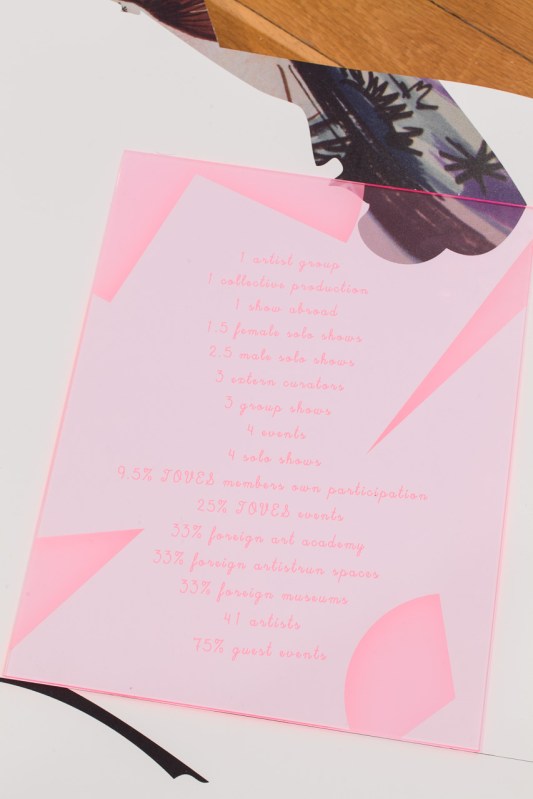 1 artist group
1 collective production
1 show abroad
1.5 female solo shows
2.5 male solo shows
3 extern curators
3 group shows
4 events
4 solo shows
9.5% TOVES members own participation
25% TOVES events
33% foreign art academy
33% foreign artistrun spaces
33% foreign museums
41 artists
75% guest events